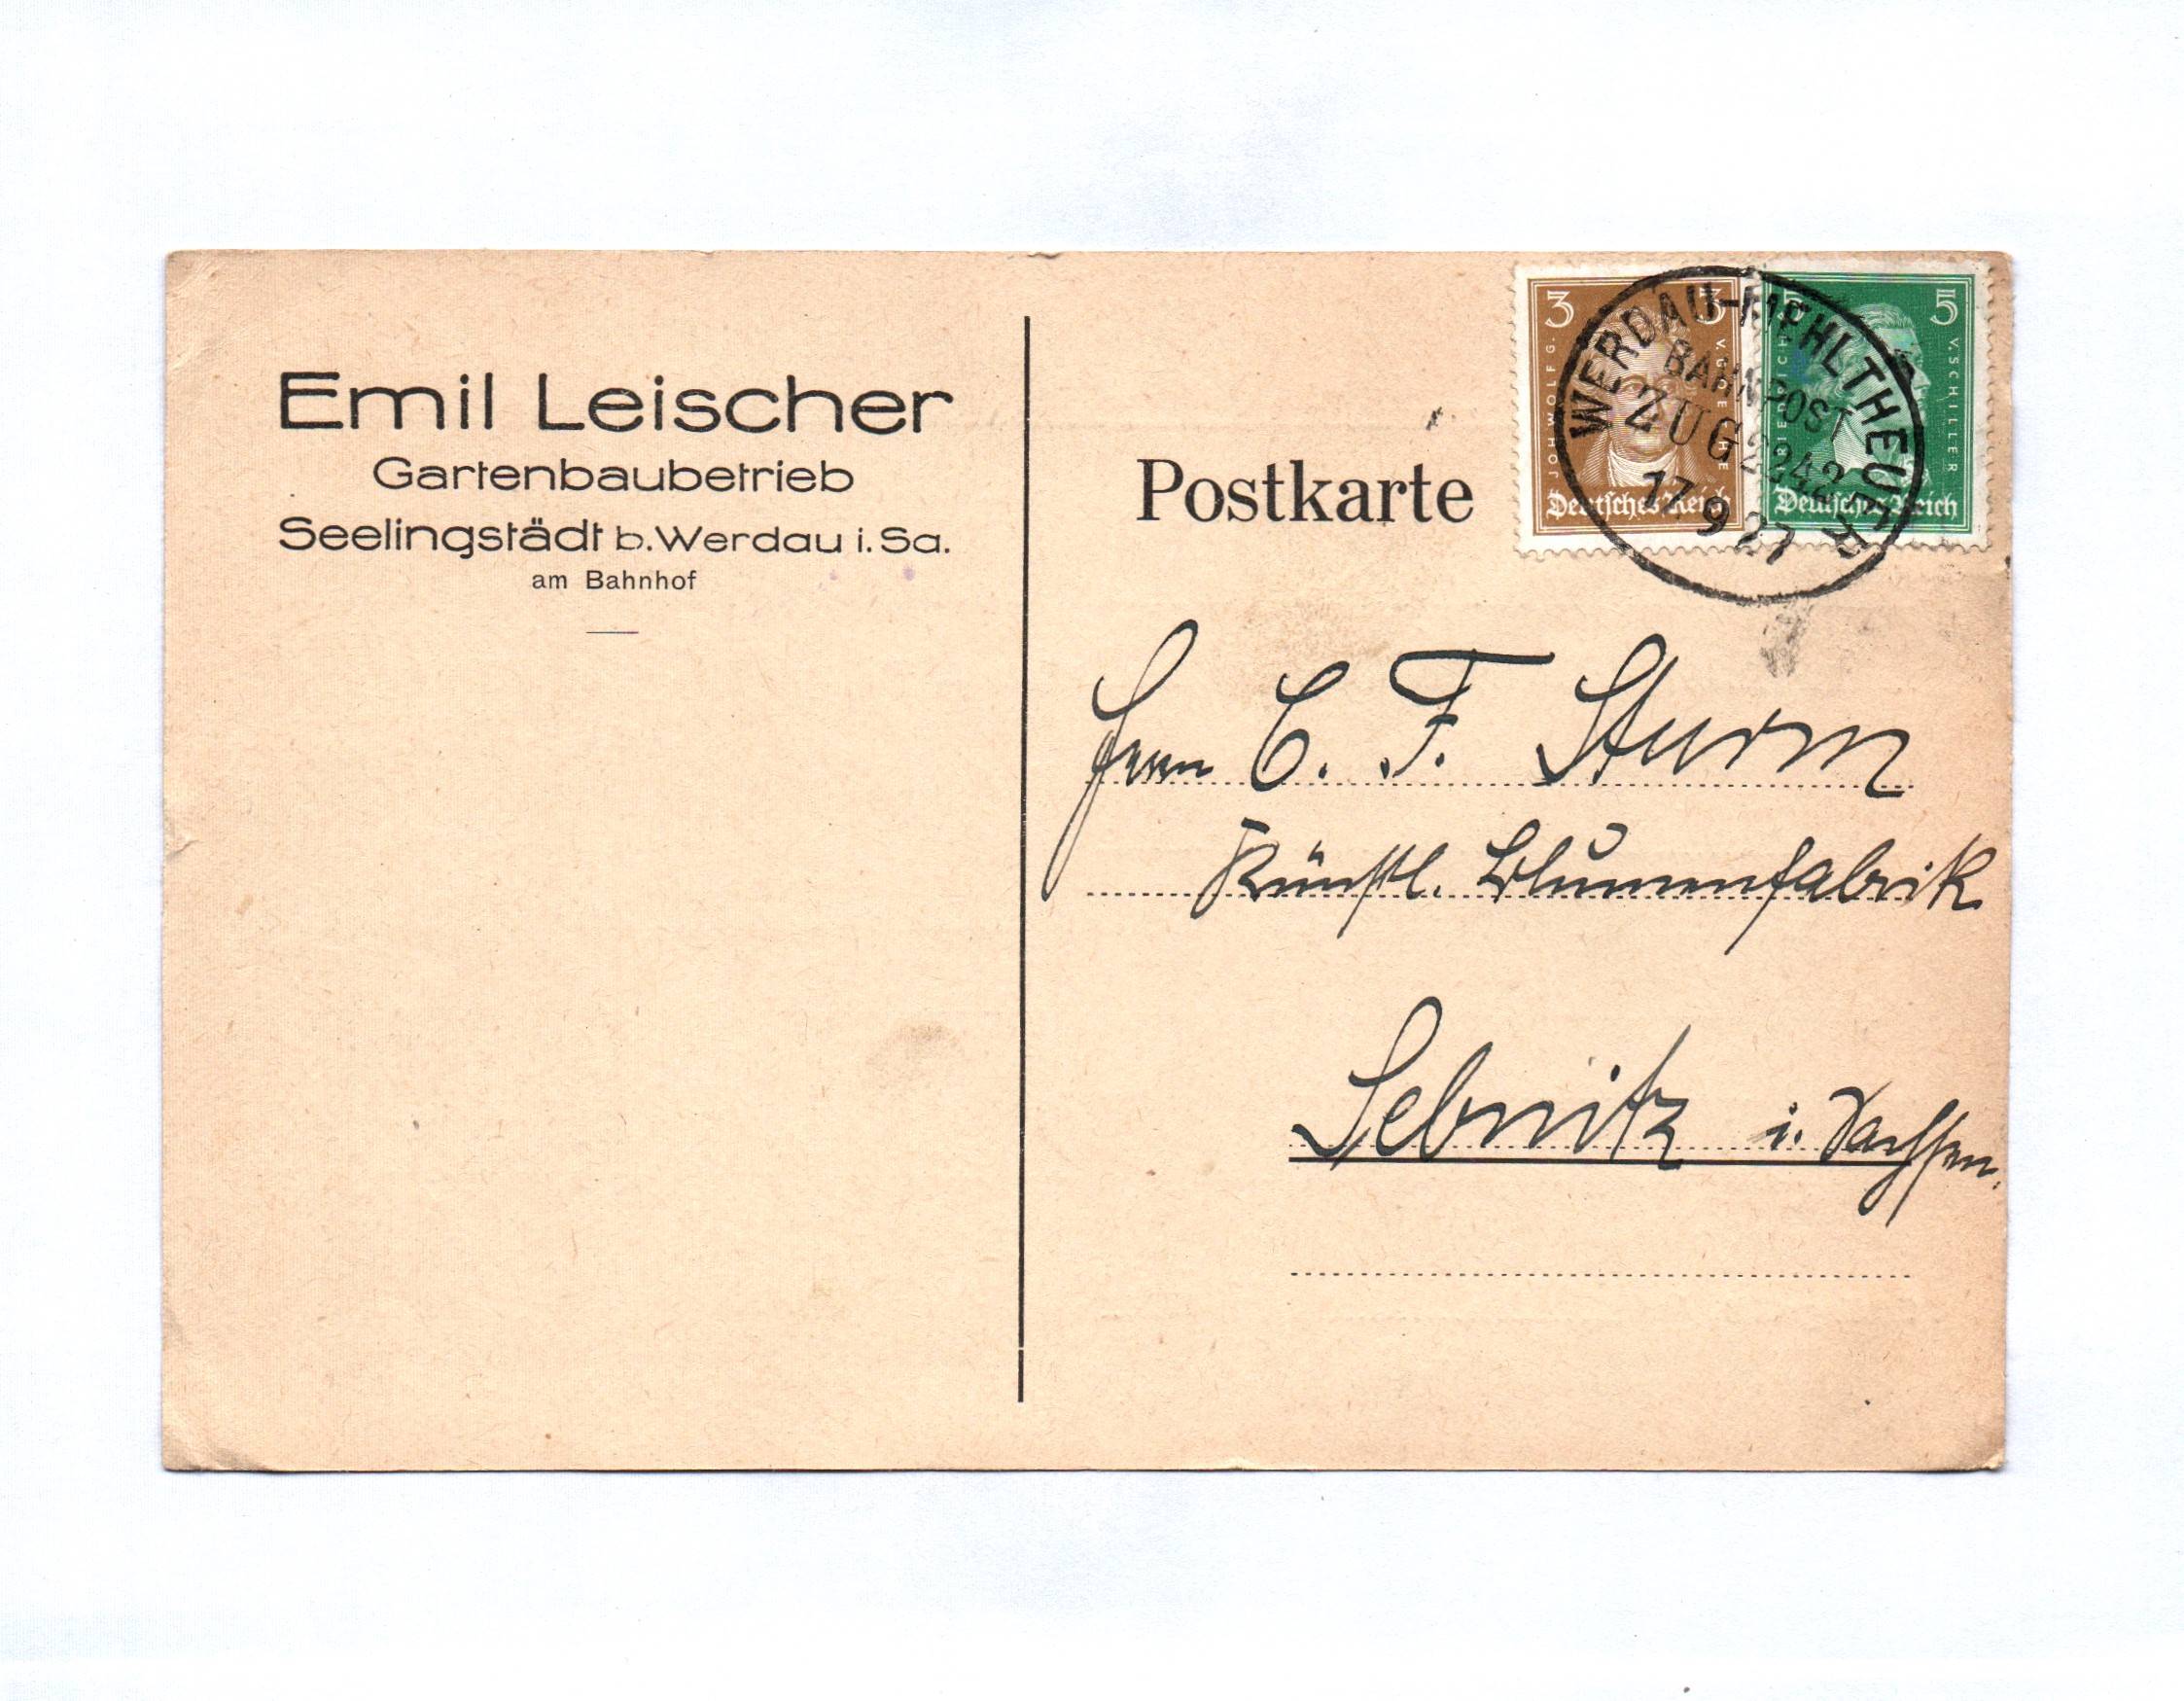 Emil Leischer
Gartenbaubetrieb
Seelingstädt b. Werdau i. Sa.
am Bahnhof
Postkarte
3 3
JOH. WOLFG. V. GOETHE
Deutsches Reich
5 5
FRIEDRICH V. SCHILLER
Deutsches Reich
WERDAU-MEHLTHEUER
BAHNPOST
ZUG 2242
17 9 27
Herrn C. F. Sturm
Künstl. Blumenfabrik
Sebnitz i. Sachsen.